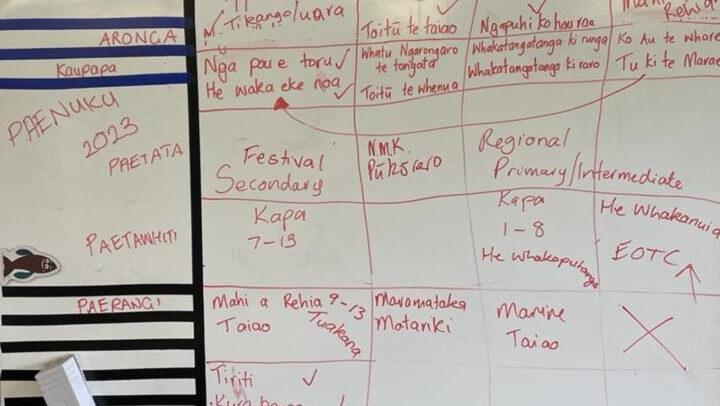 ARONGA
Kaupapa
PAENUKU
2023
PAETATA
PAETAWHITI
PAERANGI
Toitū te taiao
Ngapuhi ko hau roa
Nga pou e toru ✓
He waka eke noa ✓
Whatu Ngarongaro
te tangata
Toitū te whenua
Whakatangatanga ki runga
Whakatangatanga ki raro
Ko Au te whare
Tu ki te Marae
Festival
Secondary
NMK.
Regional
Primary/Intermediate
Kapa
7-13
Kapa
1-8
He Whakaputanga
He Whakanuia
EOTC
Mahi a Rehia 9-13
Taiao
Tuakana
Maramataka
Matariki
Marine
Taiao
Tiriti ✓